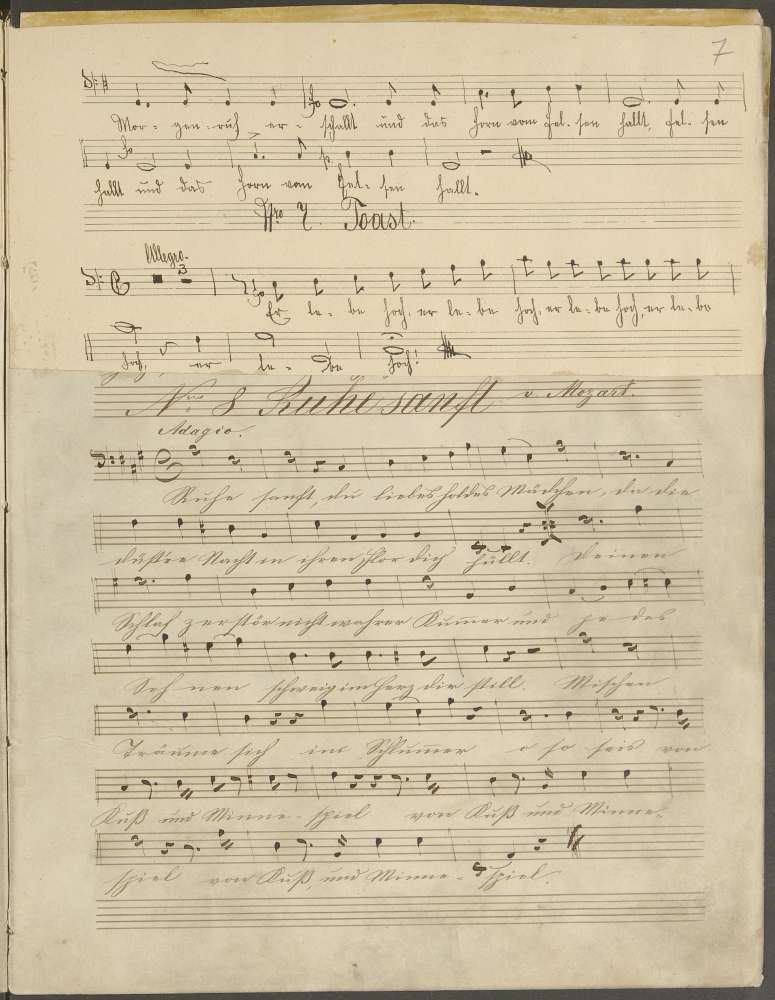 7
Mor- gen-ruf er- schallt und das Horn vom Fel-sen hallt, Fel-sen
hallt und das Horn vom Fel-sen hallt.
Nro 7. Toast.
Allegro.
3
Er le-be hoch, er le-be hoch, er le-be hoch, er le-be
hoch, er le-be hoch!
Nro 8 Ruhe sanft v. Mozart.
Adagio.
Ruhe sanft, du liebes holdes Mädchen, da die
düstre Nacht in ihren Flor dich hüllt. Deinen
Schlaf zerstör nicht wahrer Kumer und je des
Seh nen schweig im Herz dir still. Mischen
Träume sich ins Schlummer o so seis von
Kuß und Minne-spiel von Kuß und Minne-
spiel von Kuß und Minne-spiel.